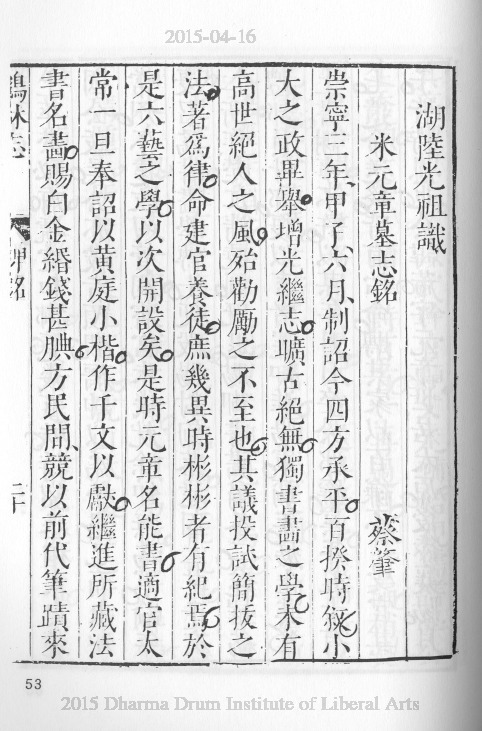 2015-04-16
湖陸光祖識
米元章墓志銘
蔡肇
崇寧三年、甲子、六月、制詔令四方承平百揆時敘小
大之政畢舉增光繼志曠古絕無獨書畫之學未有
高世絕人之風殆勸勵之不至也其議投試簡拔之
法著爲律命建官養徒庶幾異時彬彬者有紀焉於
是六藝之學以次開設矣是時元章名能書適官太
常一旦奉詔以黃庭小楷作千文以獻繼進所藏法
書名畫賜白金緡錢甚腆方民間、競以前代筆蹟來
鶴林志
碑銘
二十
53
2015 Dharma Drum Institute of Liberal Arts